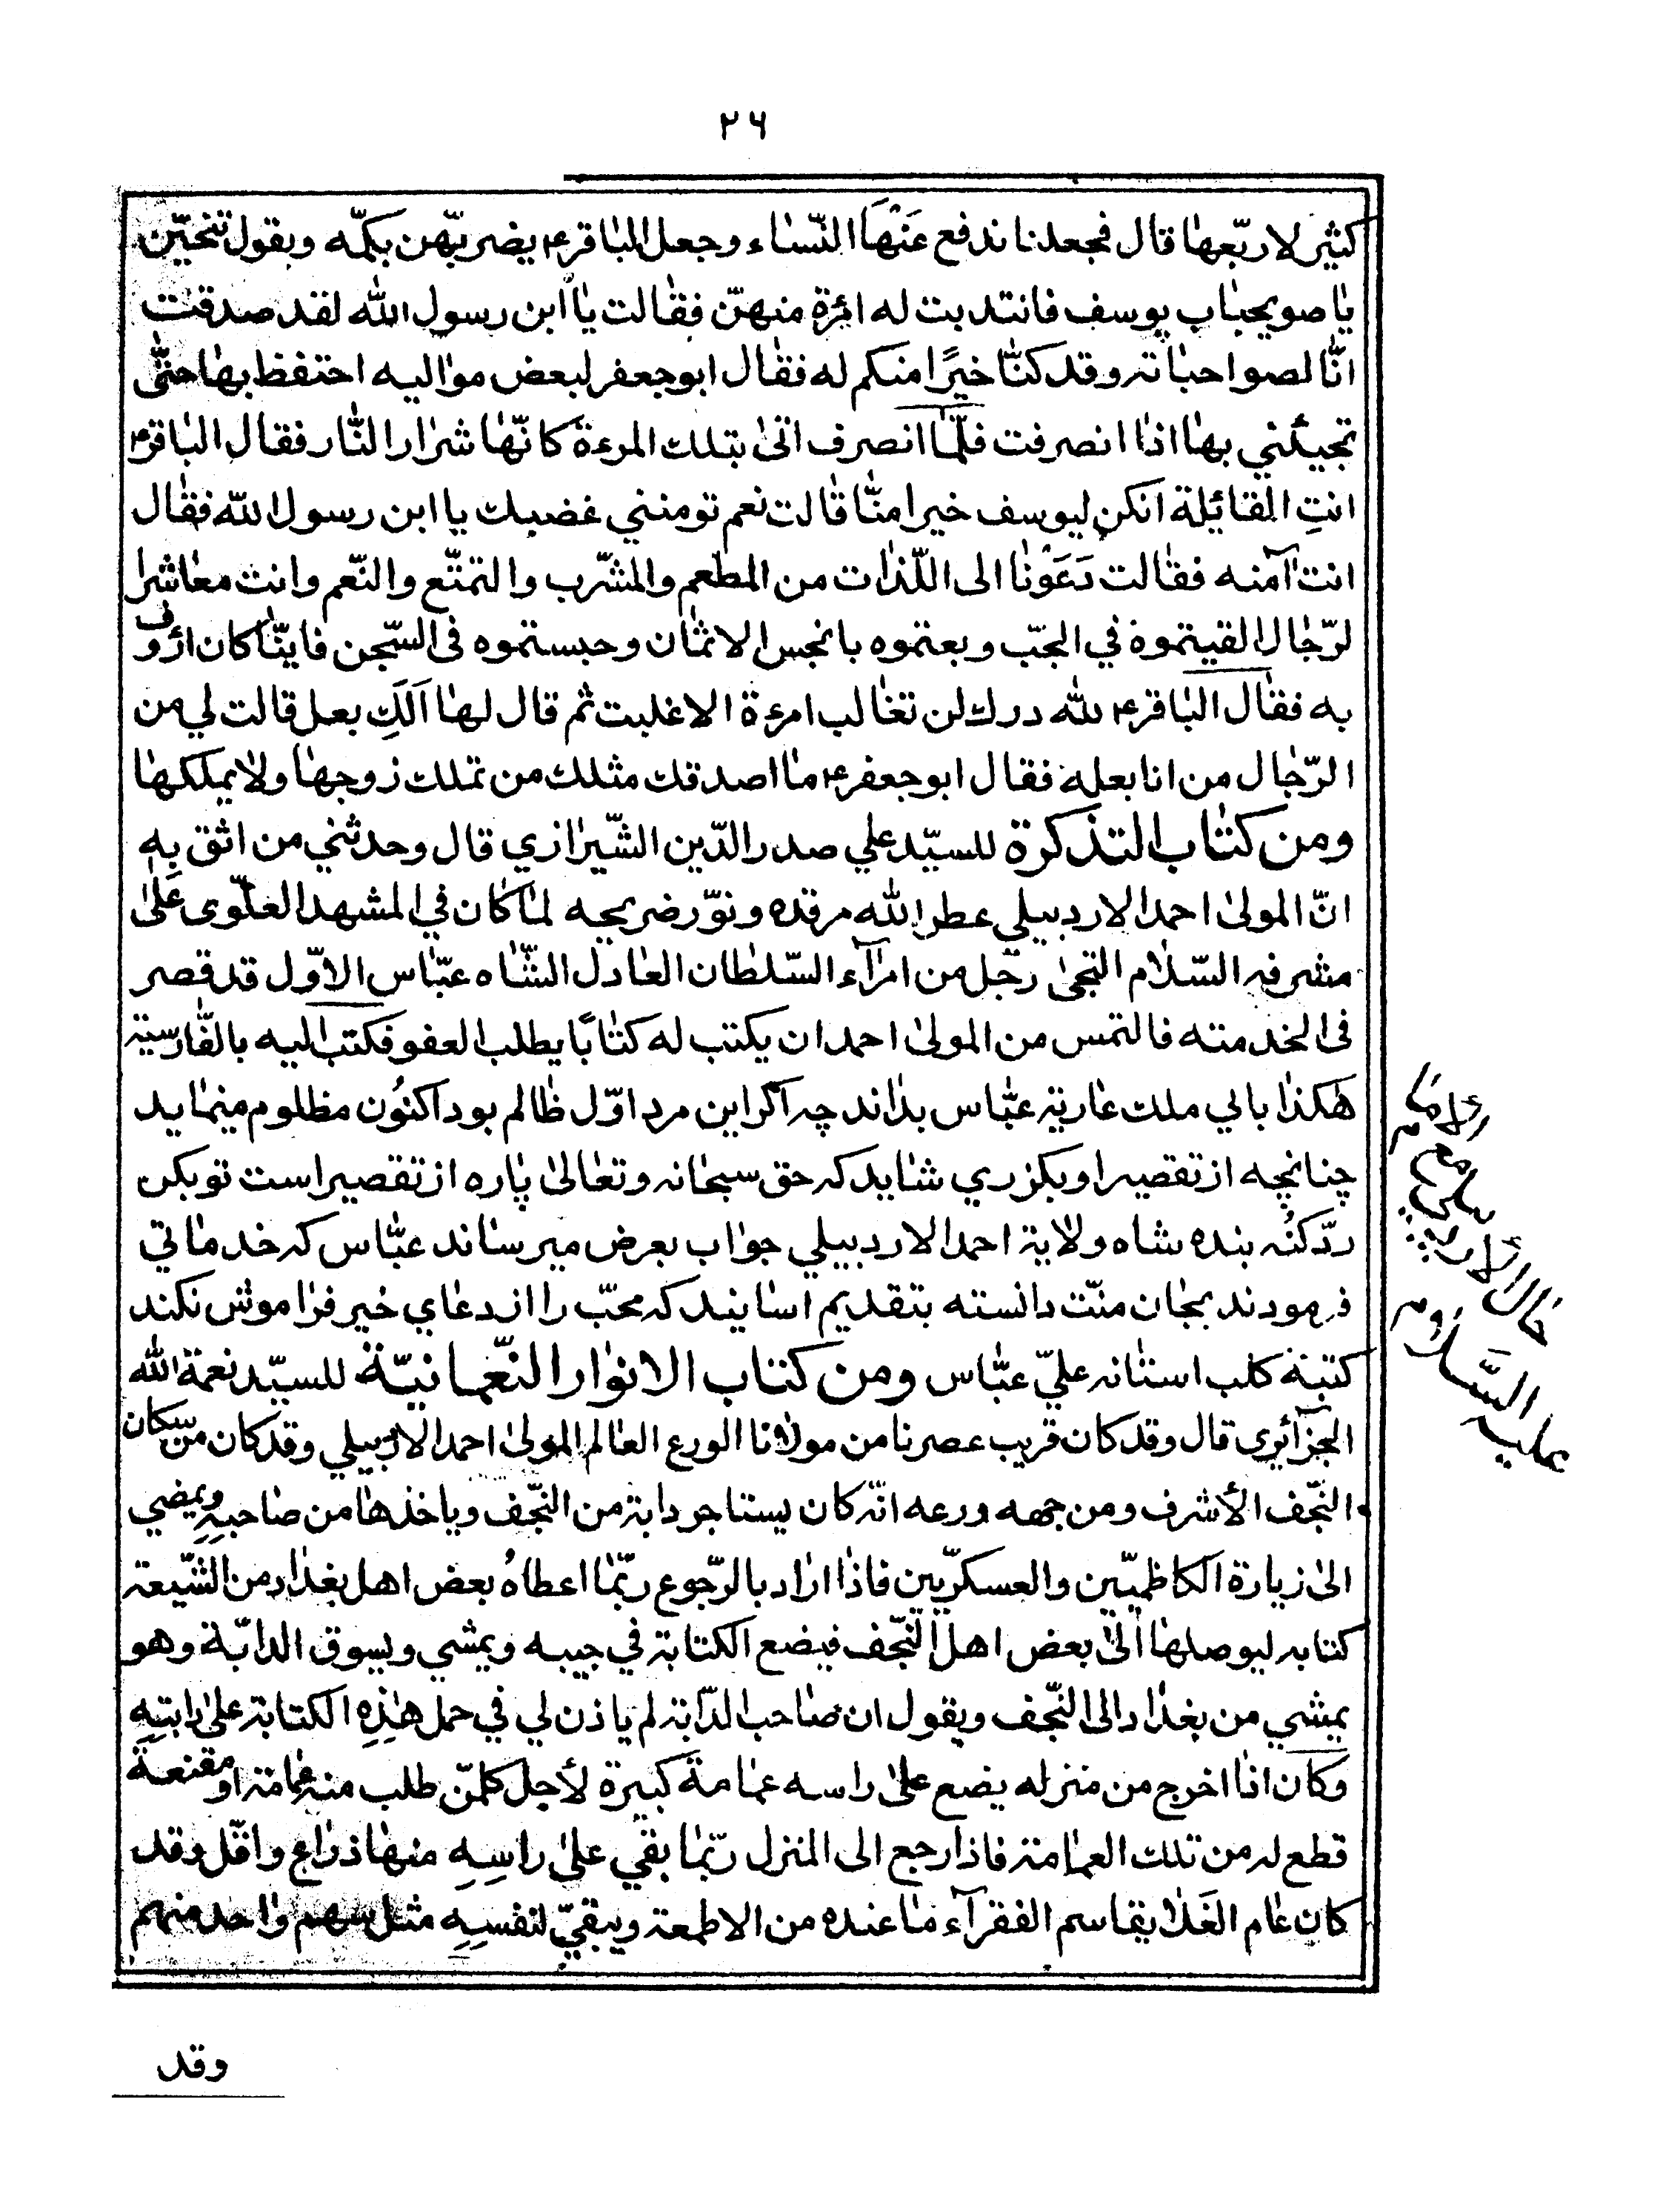 ۲۶
كثير لاربّعها قال فجعلنا ندفع عَنْها النّساء وجعل الباقر ع يضربهّن بكمّه ويقول تنحيّن
يا صويحباب يوسف فانتدبت له امرة منهنّ فقالت يا ابن رسول الله لقد صدقت
انّا لصواحباته وقد كنّا خيرًا منكم له فقال ابو جعفر لبعض مواليه احتفظ بها حتّى
تجيئني بها اذا انصرفت فلمّا انصرف اتى بتلك المرءة كانّها شرار النّار فقال الباقر ع
انتِ القائيلة انكن ليوسف خيرا منّا قالت نعم تومنني غضبك يا ابن رسول الله فقال
انت آمنه فقالت دَعَوْنا الى اللّذات من المطعم والمشرب والتمتّع والنّعم وانت معاشرا
لرّجال القيتموه في الجبّ وبعتموه بانجس الاثمان وحبستموه فى السّجن فايّنا كان ارؤف
به فقال الباقر ع لله درك لن تغالب امرءة الا غلبت ثم قال لها اَلَكِ بعل قالت لي من
الرّجال من انا بعله فقال ابو جعفر ع ما اصدقك مثلك من تملك زوجها ولا يملكها
ومن كتاب التذكرة للسيّد علي صدر الدّين الشّيرازي قال وحدثني من اثق بِهِ
انّ المولى احمد الاردبيلي عطر الله مرقده ونوّر ضريحه لما كان في المشهد العلّوى على
مشرفه السّلام التجى رجّل من امرآء السّلطان العادل الشّاه عبّاس الاوّل قد قصر
فى الخدمته فالتمس من المولى احمد ان يكتب له كتابًا يطلب العفو فكتب اليه بالفّارسيّة
هكذا باني ملك عاريه عبّاس بداند چه اگر اين مرد اوّل ظالم بود اكنوُن مظلوم مينمايد
چنانچه از تقصير او بكزري شايد كه حق سبحانه وتعالى پاره از تقصيراست توبكن
ردّ كنُه بنده شاه ولاية احمد الاردبيلي جواب بعرض ميرساند عبّاس كه خدماتي
فرمودند بجان منّت دانسته بتقديم اسانيد كه محبّ را از دعاي خير فراموش نكند
كتبة كلب استانه عليّ عبّاس ومن كتاب الانوار النّعمانيّة للسيّد نعمة الله
الجزآئرى قال وقد كان قريب عصرنا من مولانا الورع العالم المولى احمد الاردبيلي وقد كان من سكان
النّجف الأشرف ومن جهه ورعه انّه كان يستاجر دابة من النّجف وياخذها من صاحبهِ ويمضي
الى زيارة الكاظميّين والعسكريّين فاذا اراد بالرّجوع ربّما اعطاهُ بعض اهل بغداد من الشّيعة
كتابه ليوصلها الى بعض اهل النّجف فيضع الكتابة في جيبه ويمشي ويسوق الدابّة وهو
يمشي من بغداد الى النّجف ويقول ان صاحب الدّابة لم ياذن لي في حمل هذِهِ الكتابة على دابتِهِ
وكان اذا اخرج من منزله يضع على راسه عمامة كبيرة لأجل كلمّن طلب منه عمامة او مقنعة
قطع له من تلك العمامة فاذا رجع الى المنزل ربّما بقي على راسِهِ منها ذراع واقّل وقد
كان عام الغَلا يقاسم الفقرآء ما عنده من الاطعمة ويبقيّ لنفسِهِ مثل سهم واحد منهم
حال الأردبيلي مع الأمام
عليه السَّلام
وقد